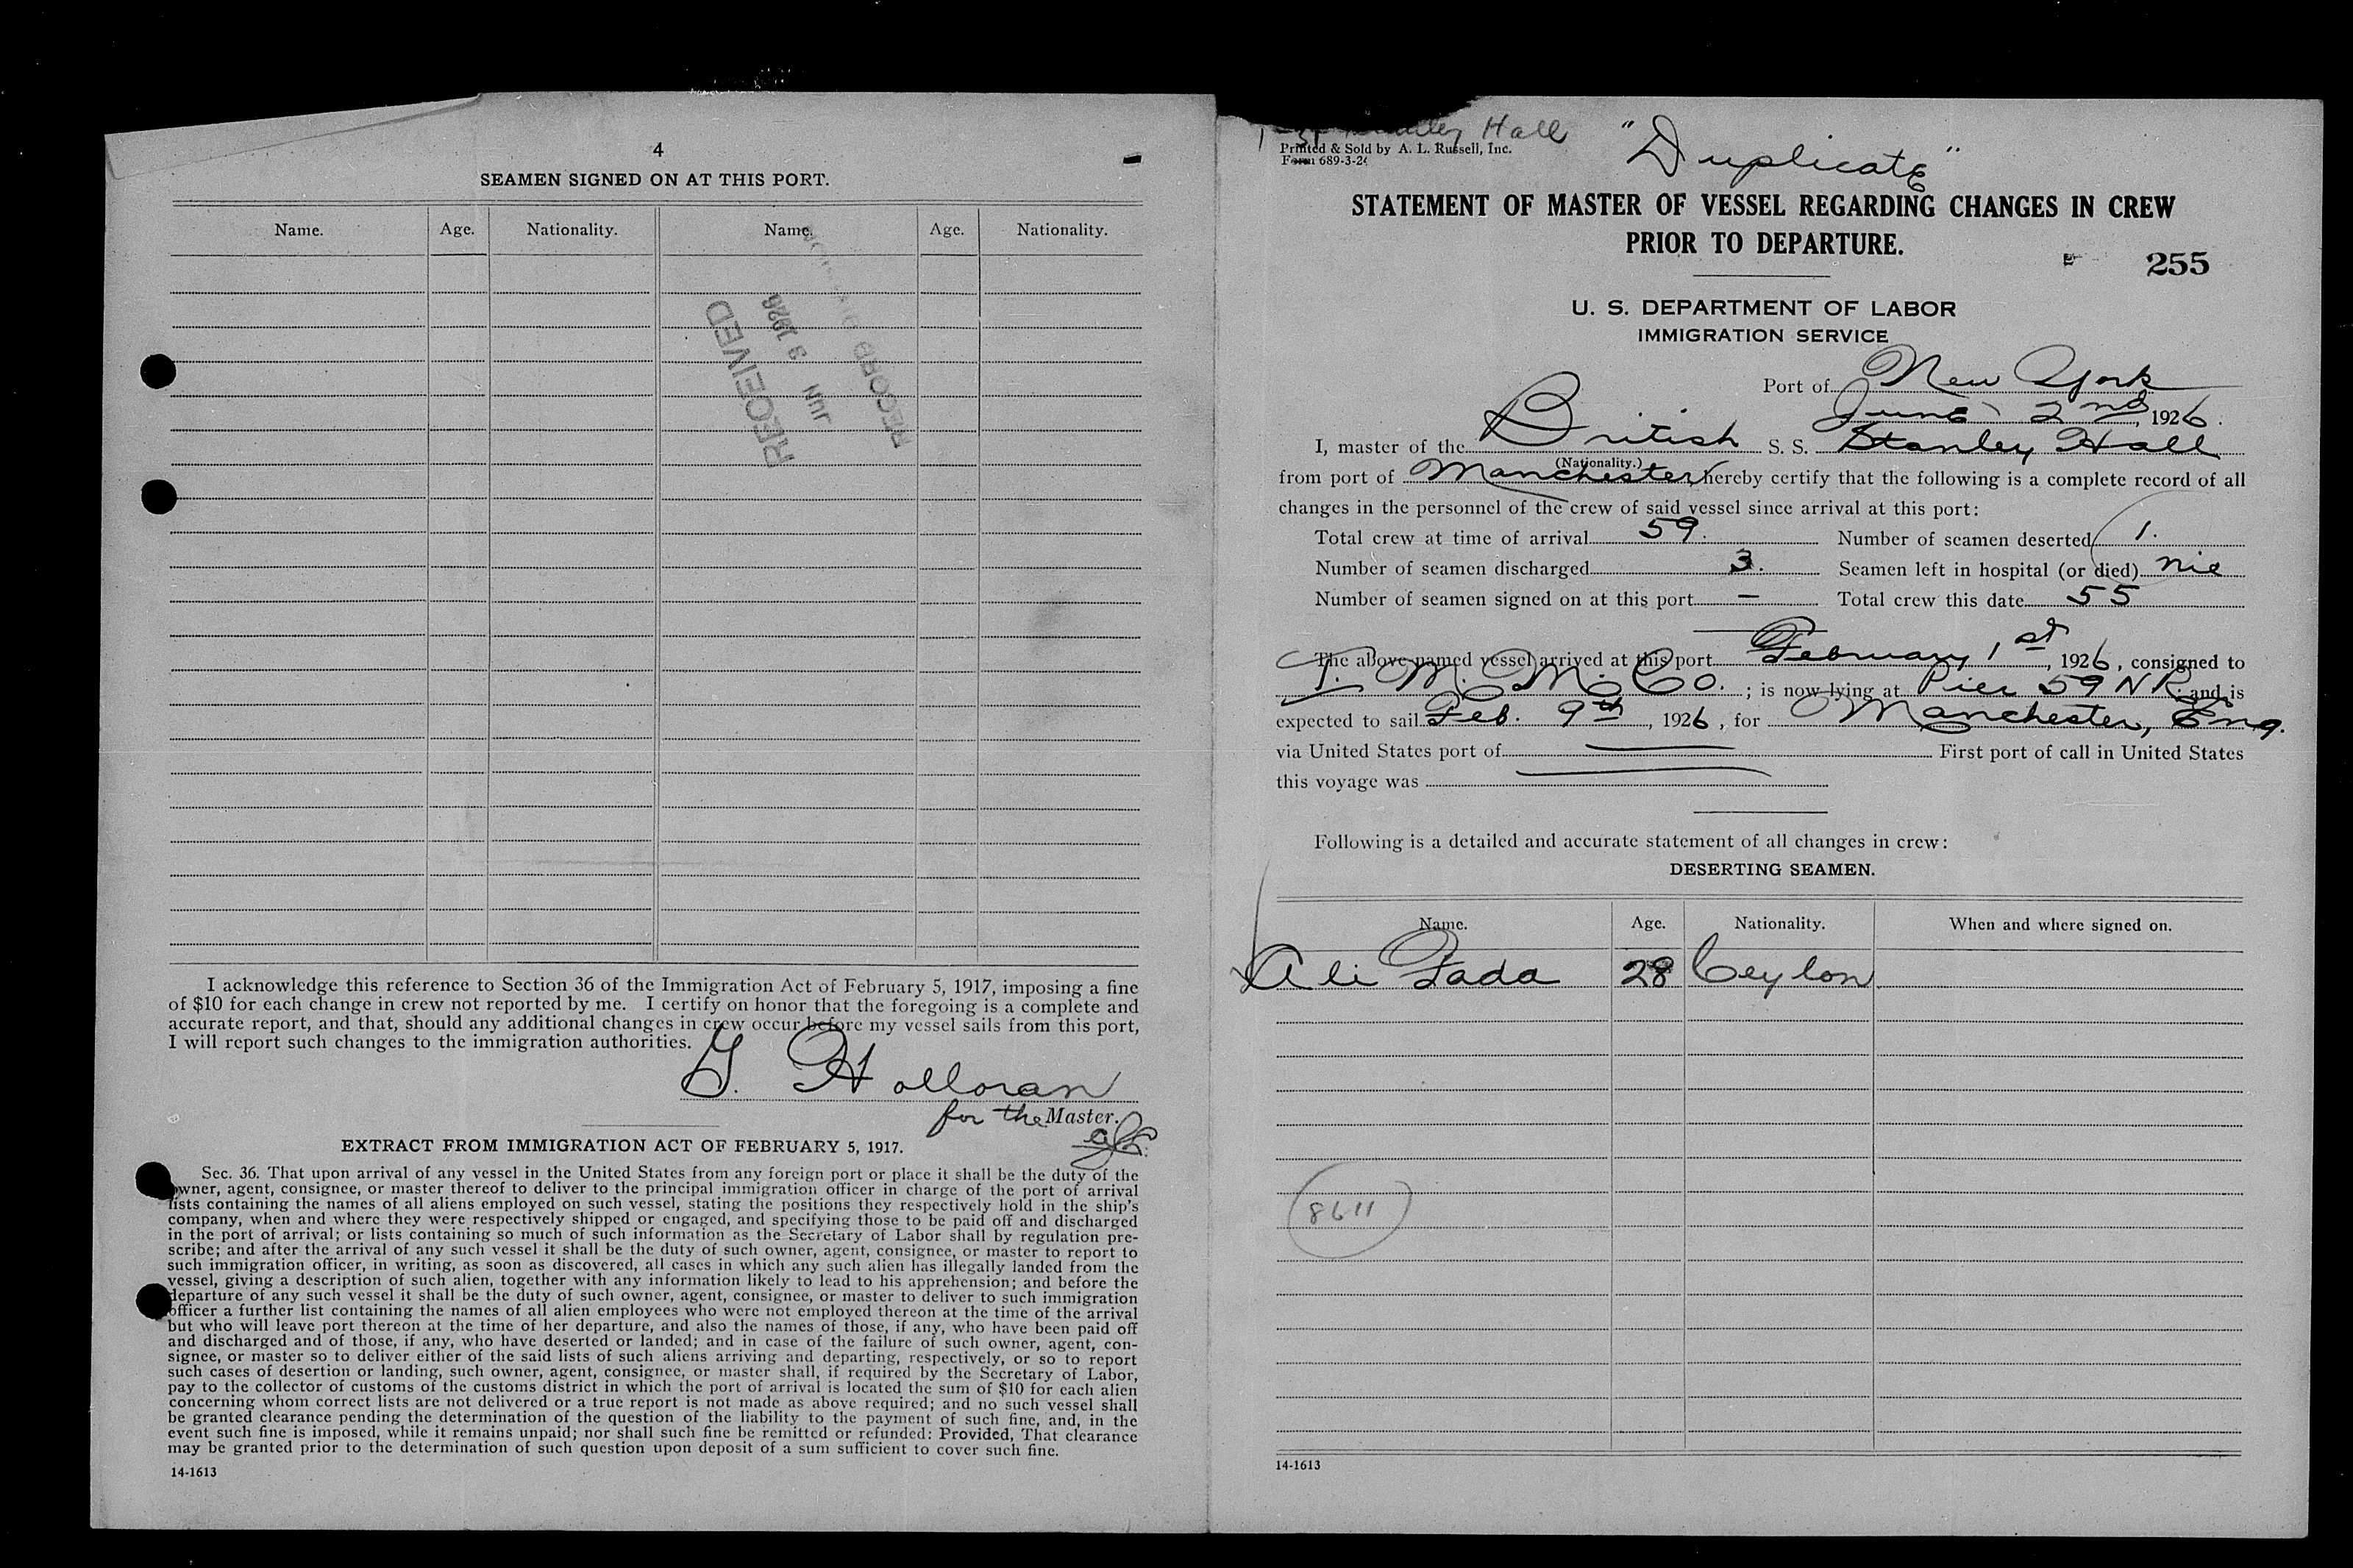 4
SEAMEN SIGNED ON AT THIS PORT.
Name. Age. Nationality. Name. Age. Nationality.
RECEIVED
JUN 3 1926
RECORD
I acknowledge this reference to Section 36 of the Immigration Act of February 5, 1917, imposing a fine
of $10 for each change in crew not reported by me. I certify on honor that the foregoing is a complete and
accurate report, and that, should any additional changes in crew occur before my vessel sails from this port,
I will report such changes to the immigration authorities.
G. Holloran
for the Master.
EXTRACT FROM IMMIGRATION ACT OF FEBRUARY 5, 1917.
Sec. 36. That upon arrival of any vessel in the United States from any foreign port or place it shall be the duty of the
owner, agent, consignee, or master thereof to deliver to the principal immigration officer in charge of the port of arrival
lists containing the names of all aliens employed on such vessel, stating the positions they respectively hold in the ship's
company, when and where they were respectively shipped or engaged, and specifying those to be paid off and discharged
in the port of arrival; or lists containing so much of such information as the Secretary of Labor shall by regulation pre-
scribe; and after the arrival of any such vessel it shall be the duty of such owner, agent, consignee, or master to report to
such immigration officer, in writing, as soon as discovered, all cases in which any such alien has illegally landed from the
vessel, giving a description of such alien, together with any information likely to lead to his apprehension; and before the
departure of any such vessel it shall be the duty of such owner, agent, consignee, or master to deliver to such immigration
officer a further list containing the names of all alien employees who were not employed thereon at the time of the arrival
but who will leave port thereon at the time of her departure, and also the names of those, if any, who have been paid off
and discharged and of those, if any, who have deserted or landed; and in case of the failure of such owner, agent, con-
signee, or master so to deliver either of the said lists of such aliens arriving and departing, respectively, or so to report
such cases of desertion or landing, such owner, agent, consignee, or master shall, if required by the Secretary of Labor,
pay to the collector of customs of the customs district in which the port of arrival is located the sum of $10 for each alien
concerning whom correct lists are not delivered or a true report is not made as above required; and no such vessel shall
be granted clearance pending the determination of the question of the liability to the payment of such fine, and, in the
event such fine is imposed, while it remains unpaid; nor shall such fine be remitted or refunded: Provided, That clearance
may be granted prior to the determination of such question upon deposit of a sum sufficient to cover such fine.
14-1613
Hall
"Duplicate"
Printed & Sold by A. L. Russell, Inc.
Form 689-3-2
STATEMENT OF MASTER OF VESSEL REGARDING CHANGES IN CREW
PRIOR TO DEPARTURE.
255
U. S. DEPARTMENT OF LABOR
IMMIGRATION SERVICE
Port of New York
June 2nd, 1926.
I, master of the British S. S. Stanley Hall
(Nationality.)
from port of Manchester hereby certify that the following is a complete record of all
changes in the personnel of the crew of said vessel since arrival at this port:
Total crew at time of arrival 59. Number of seamen deserted 1.
Number of seamen discharged 3. Seamen left in hospital (or died) nil
Number of seamen signed on at this port — Total crew this date 55
The above-named vessel arrived at this port February 1st, 1926, consigned to
I. M. M. Co. ; is now lying at Pier 59 N R. and is
expected to sail Feb. 9th, 1926, for Manchester, Eng.
via United States port of First port of call in United States
this voyage was
Following is a detailed and accurate statement of all changes in crew:
DESERTING SEAMEN.
Name. Age. Nationality. When and where signed on.
Ali Fada 28 Ceylon
8611
14-1613